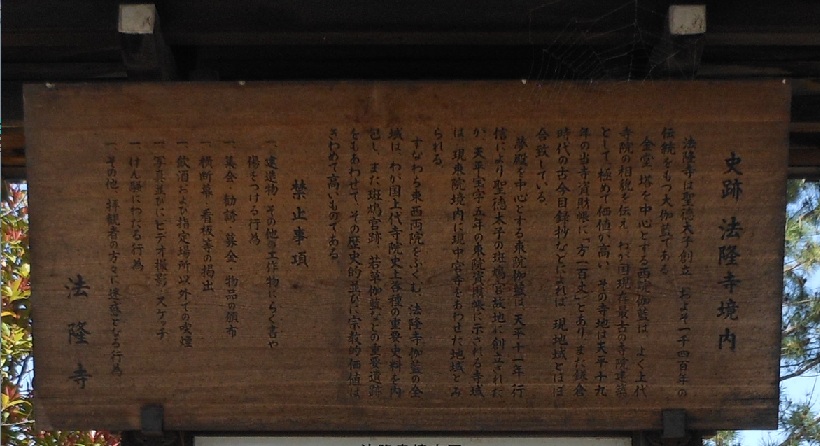 史跡 法隆寺境内
法隆寺は聖徳太子創立、およそ一千四百年の
伝統をもつ大伽藍である。
金堂・塔を中心とする西院伽藍は、よく上代
寺院の相貌を伝え、わが国現存最古の寺院建築
として、極めて価値が高い。その寺地は天平十九
年の当寺資財帳に「方一百丈」とあり、また鎌倉
時代の古今目録抄などによれば、現地域とほぼ
合致している。
夢殿を中心とする東院伽藍は、天平十一年、行
信により聖徳太子の斑鳩宮故地に創立された
り、天平宝字五年の東院資財帳に示される寺域
は、現東院境内に現中宮寺をあわせた地域とみ
られる。
すなわち東西両院をふくむ、法隆寺伽藍の全
域は、わが国上代寺院史上各種の重要史料を内
包し、また斑鳩宮跡、若草伽藍などの重要遺跡
をもあわせて、その歴史的並びに宗教的価値は
きわめて高いものである。
禁止事項
一、建造物、その他の工作物にらく書や
傷をつける行為
一、募金・勧誘・募金・物品の頒布
一、横断幕、看板等の掲出
一、飲酒および指定場所以外での喫煙
一、写真並びにビデオ撮影、スケッチ
一、けん騒にわたる行為
一、その他、拝観者の方々に迷惑となる行為
法隆寺